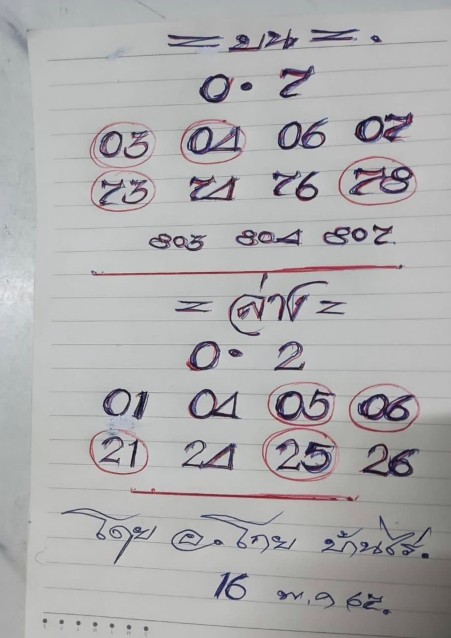 = บน = .
0 . 7
03 04 06 07
73 74 76 78
803 804 807
= ล่าง =
0 . 2
01 04 05 06
21 24 25 26
โดย อ. โกย บ้านไร่.
16 พ.ค 65.